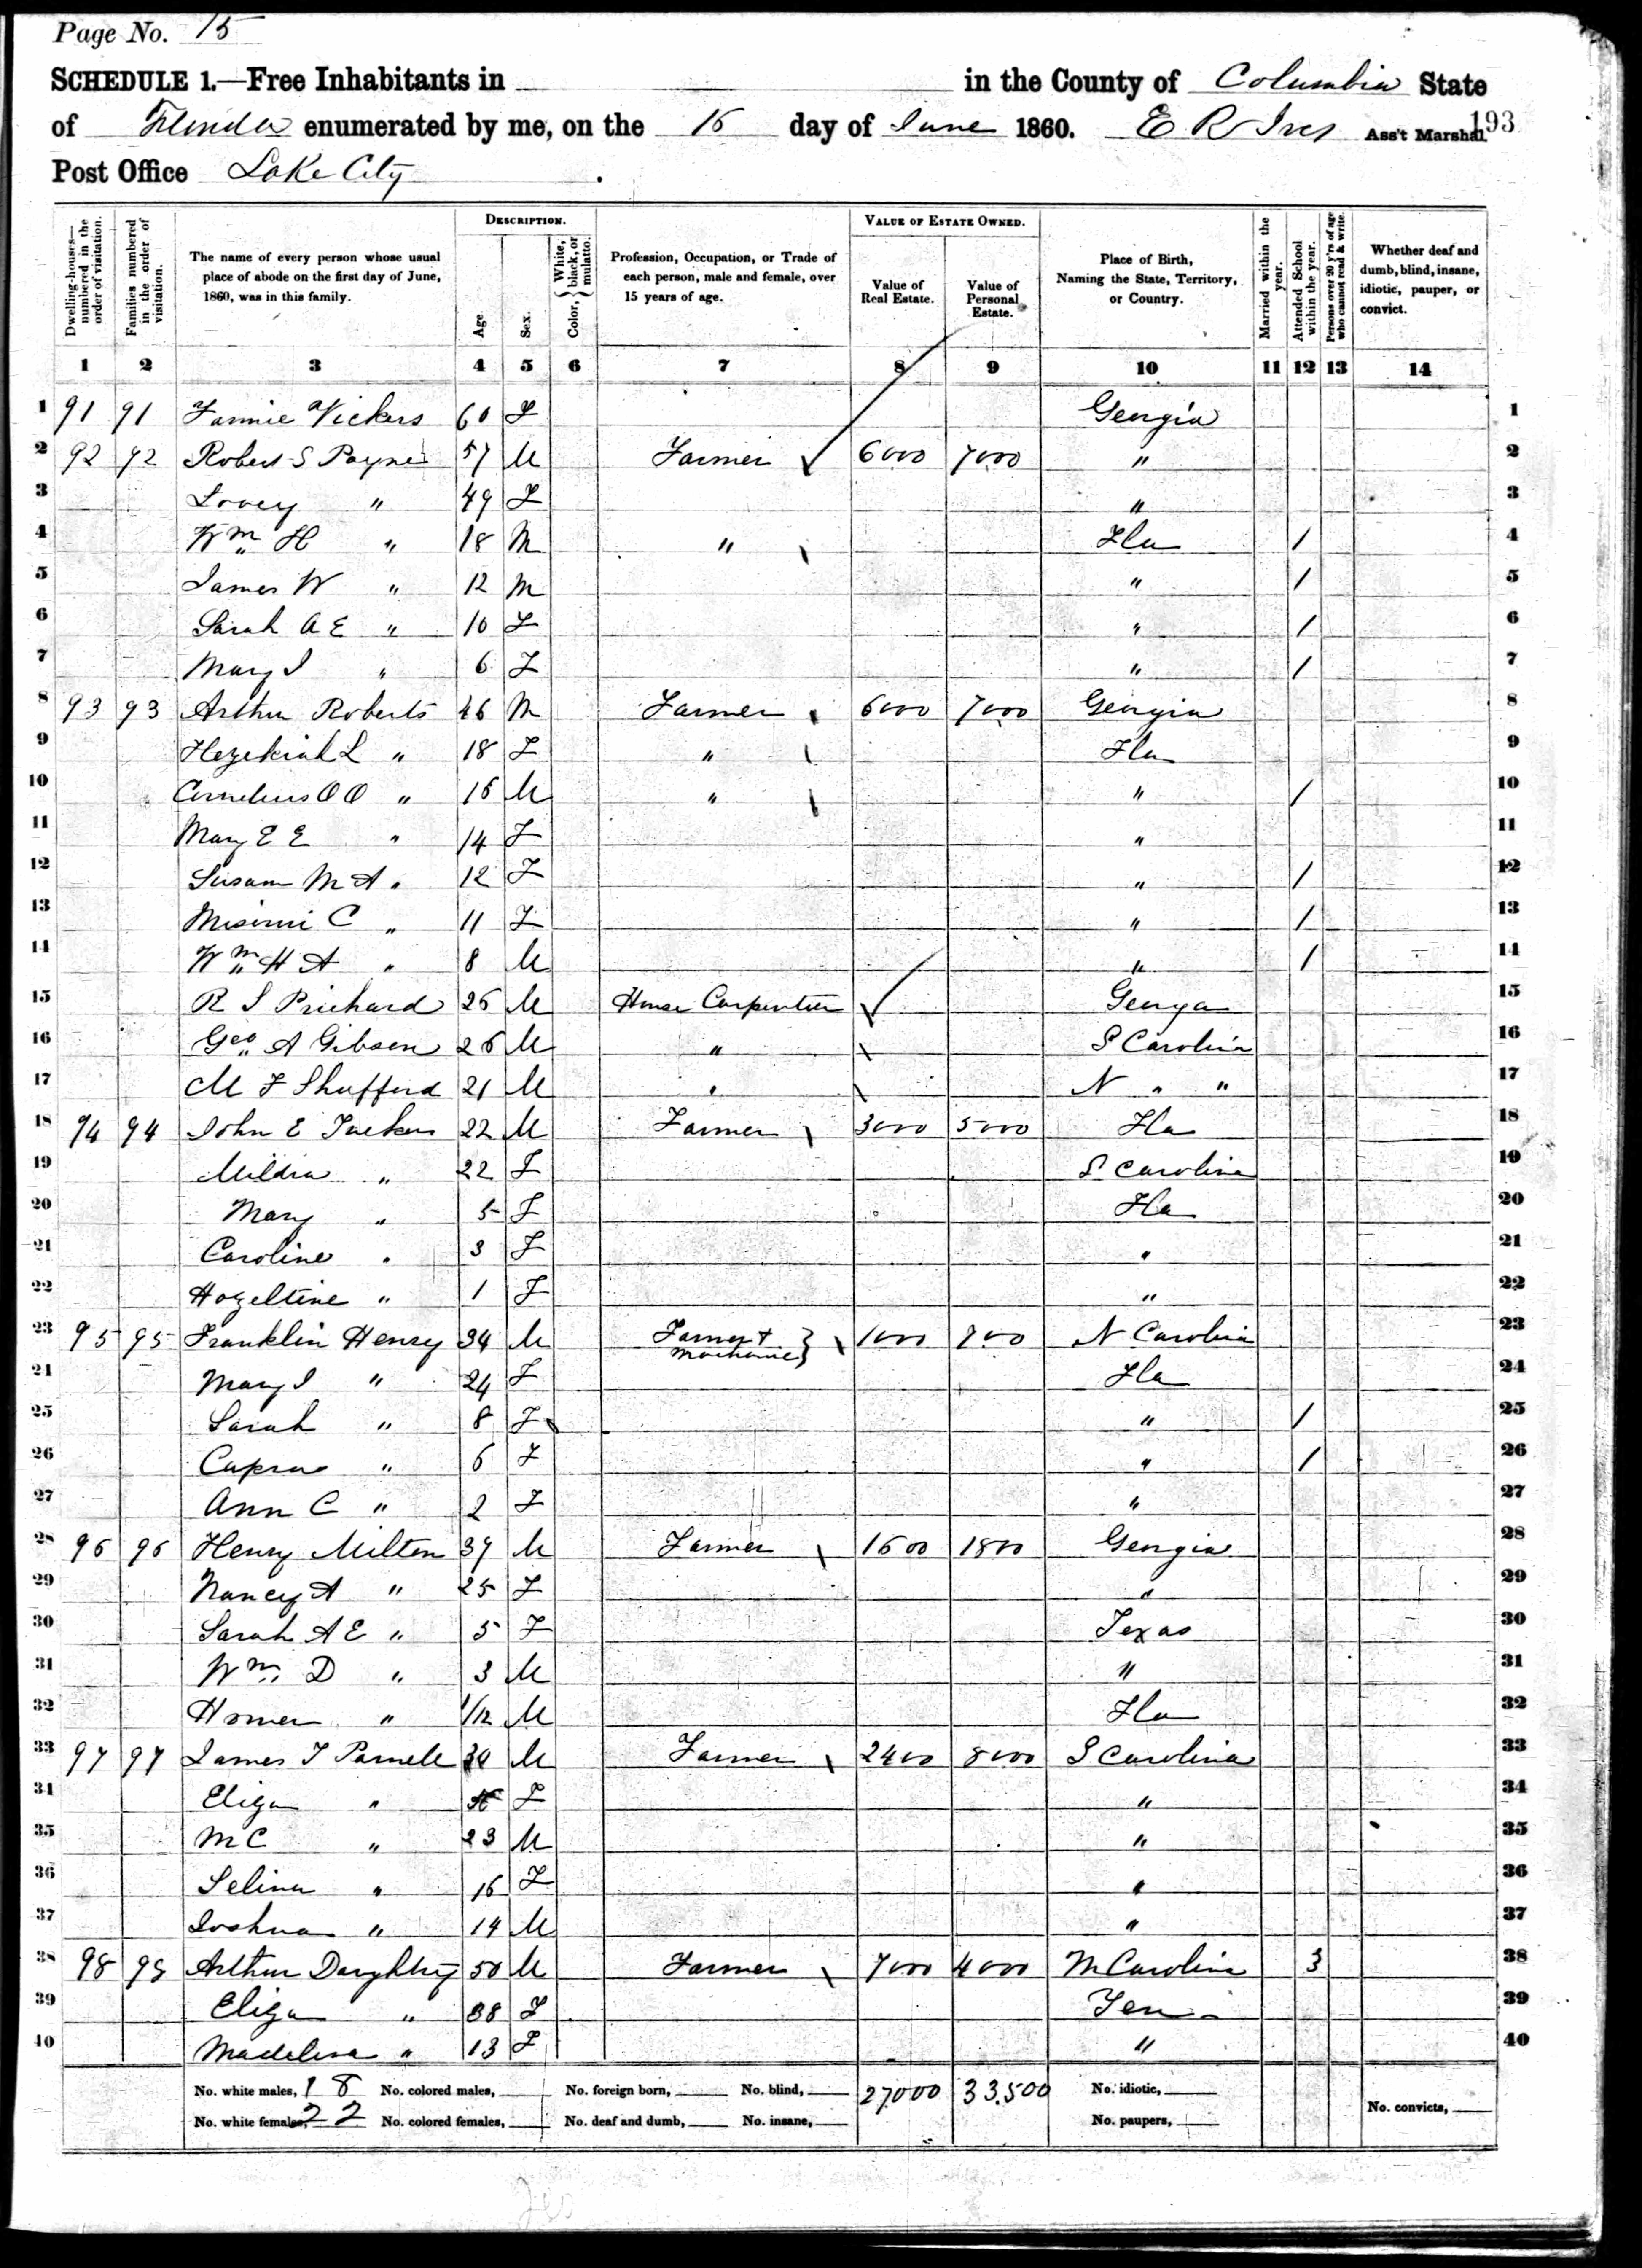 Page No. 15
SCHEDULE 1.—Free Inhabitants in in the County of Columbia State
of Florida enumerated by me, on the 16 day of June 1860. E R Ives Ass't Marshal 193
Post Office Lake City
DESCRIPTION. VALUE OF ESTATE OWNED.
Dwelling-houses—numbered in the order of visitation. Families numbered in the order of visitation. The name of every person whose usual place of abode on the first day of June, 1860, was in this family. Age. Sex. Color, {White, black, or mulatto. Profession, Occupation, or Trade of each person, male and female, over 15 years of age. Value of Real Estate. Value of Personal Estate. Place of Birth, Naming the State, Territory, or Country. Married within the year. Attended School within the year. Persons over 20 y'rs of age who cannot read & write. Whether deaf and dumb, blind, insane, idiotic, pauper, or convict.
1 2 3 4 5 6 7 8 9 10 11 12 13 14
1 91 91 Fannie Vickers 60 F Georgia 1
2 92 92 Robert S Payne 57 M Farmer 6000 7000 " 2
3 Lovey " 49 F " 3
4 Wm H " 18 M " Fla / 4
5 James W " 12 M " / 5
6 Sarah A E " 10 F " / 6
7 Mary J " 6 F " / 7
8 93 93 Arthur Roberts 46 M Farmer 6000 7000 Georgia 8
9 Hezekiah L " 18 F " Fla 9
10 Cornelius O O " 16 M " " / 10
11 Mary E E " 14 F " 11
12 Susan M A " 12 F " / 12
13 C " 11 F " / 13
14 Wm H A " 8 M " / 14
15 R J Prichard 26 M House Carpenter Georga 15
16 Geo A Gibson 26 M " S Carolina 16
17 M F Shufford 21 M " N " " 17
18 94 94 John E Tucker 22 M Farmer 3000 5000 Fla 18
19 Mildra " 22 F S Carolina 19
20 Mary " 5 F Fla 20
21 Caroline " 3 F " 21
22 Hozeltine " 1 F " 22
23 95 95 Franklin Henry 34 M Farmer + Mechanic } 1000 700 N Carolina 23
24 Mary J " 24 F Fla 24
25 Sarah " 8 F " / 25
26 " 6 F " / 26
27 Ann C " 2 F " 27
28 96 96 Henry Milton 39 M Farmer 1600 1800 Georgia 28
29 Nancy A " 25 F " 29
30 Sarah A E " 5 F Texas 30
31 Wm D " 3 M " 31
32 Homer " 1/12 M Fla 32
33 97 97 James T Parnell M Farmer 2400 8000 S Carolina 33
34 Eliza " F " 34
35 M C " 23 M " 35
36 Selina " 16 F " 36
37 Joshua " 14 M " 37
38 98 98 Arthur Daughtry 50 M Farmer 7000 4000 N Carolina 3 38
39 Eliza " 38 F Ten 39
40 Madelina " 13 F " 40
No. white males, 18 No. colored males, No. foreign born, No. blind, 27000 33.500 No. idiotic,
No. white females, 22 No. colored females, No. deaf and dumb, No. insane, No. paupers, No. convicts,